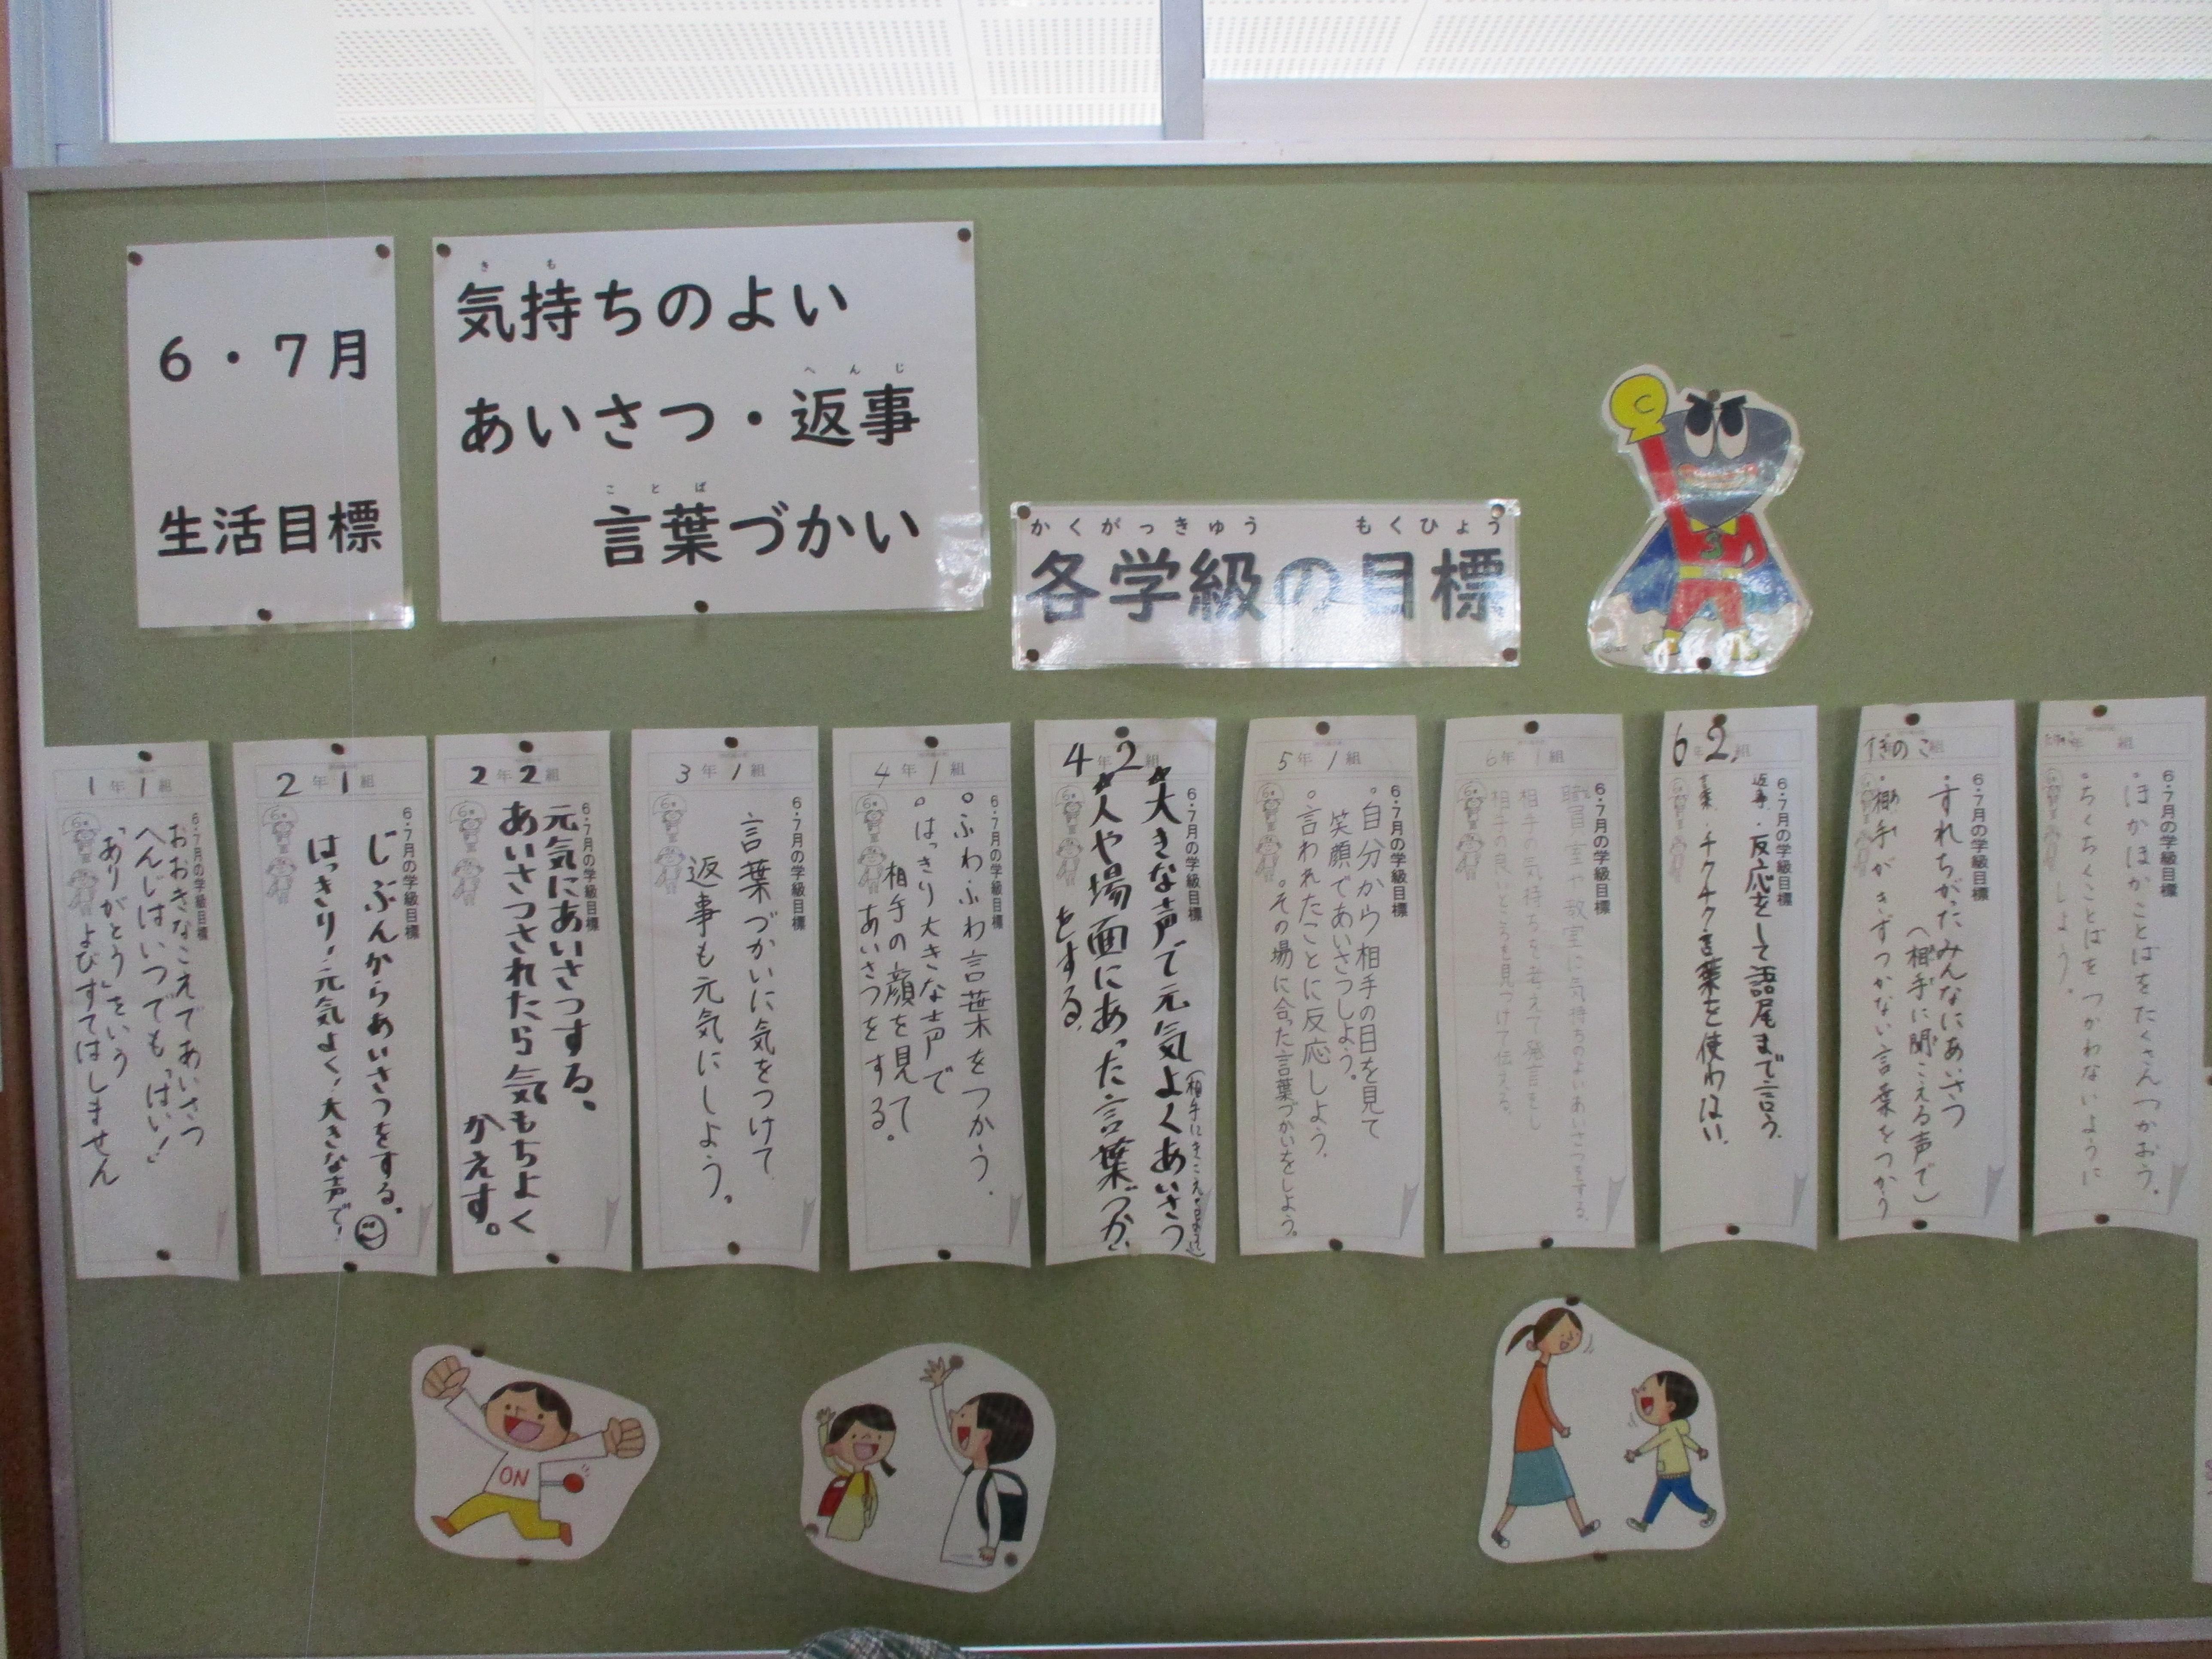 6・7月
生活目標
き も
気持ちのよい
へんじ
あいさつ・返事
ことば
言葉づかい
かくがっきゅう もくひょう
各学級の目標
1年1組
6・7月の学級目標
おおきなこえであいさつ
へんじはいつでも「はい!」
「ありがとう」をいう
よびすてはしません
2年1組
6・7月の学級目標
じぶんからあいさつをする。
はっきり、元気よく、大きな声で!
2年2組
6・7月の学級目標
元気にあいさつする。
あいさつされたら気もちよく
かえす。
3年1組
6・7月の学級目標
言葉づかいに気をつけて
返事も元気にしよう。
4年1組
6・7月の学級目標
ふわふわ言葉をつかう。
はっきり大きな声で
相手の顔を見て
あいさつをする。
4年2
6・7月の学級目標
大きな声で元気よくあいさつ
人や場面にあった言葉づかい
をする。
5年1組
6・7月の学級目標
自分から相手の目を見て
笑顔であいさつしよう。
言われたことに反応しよう。
その場に合った言葉づかいをしよう。
6年1組
6・7月の学級目標
職員室や教室に気持ちのよいあいさつをする。
相手の気持ちを考えて発言をし
相手の良いところを見つけて伝える。
6 2組
6・7月の学級目標
返事・反応をして語尾まで言う。
言葉・チクチク言葉を使わない。
きのこ組
6・7月の学級目標
・すれちがったみんなにあいさつ
(相手に聞こえる声で)
・相手がきずつかない言葉をつかう
組
6・7月の学級目標
ほかほかことばをたくさんつかおう。
ちくちくことばをつかわないように
しよう。
ON